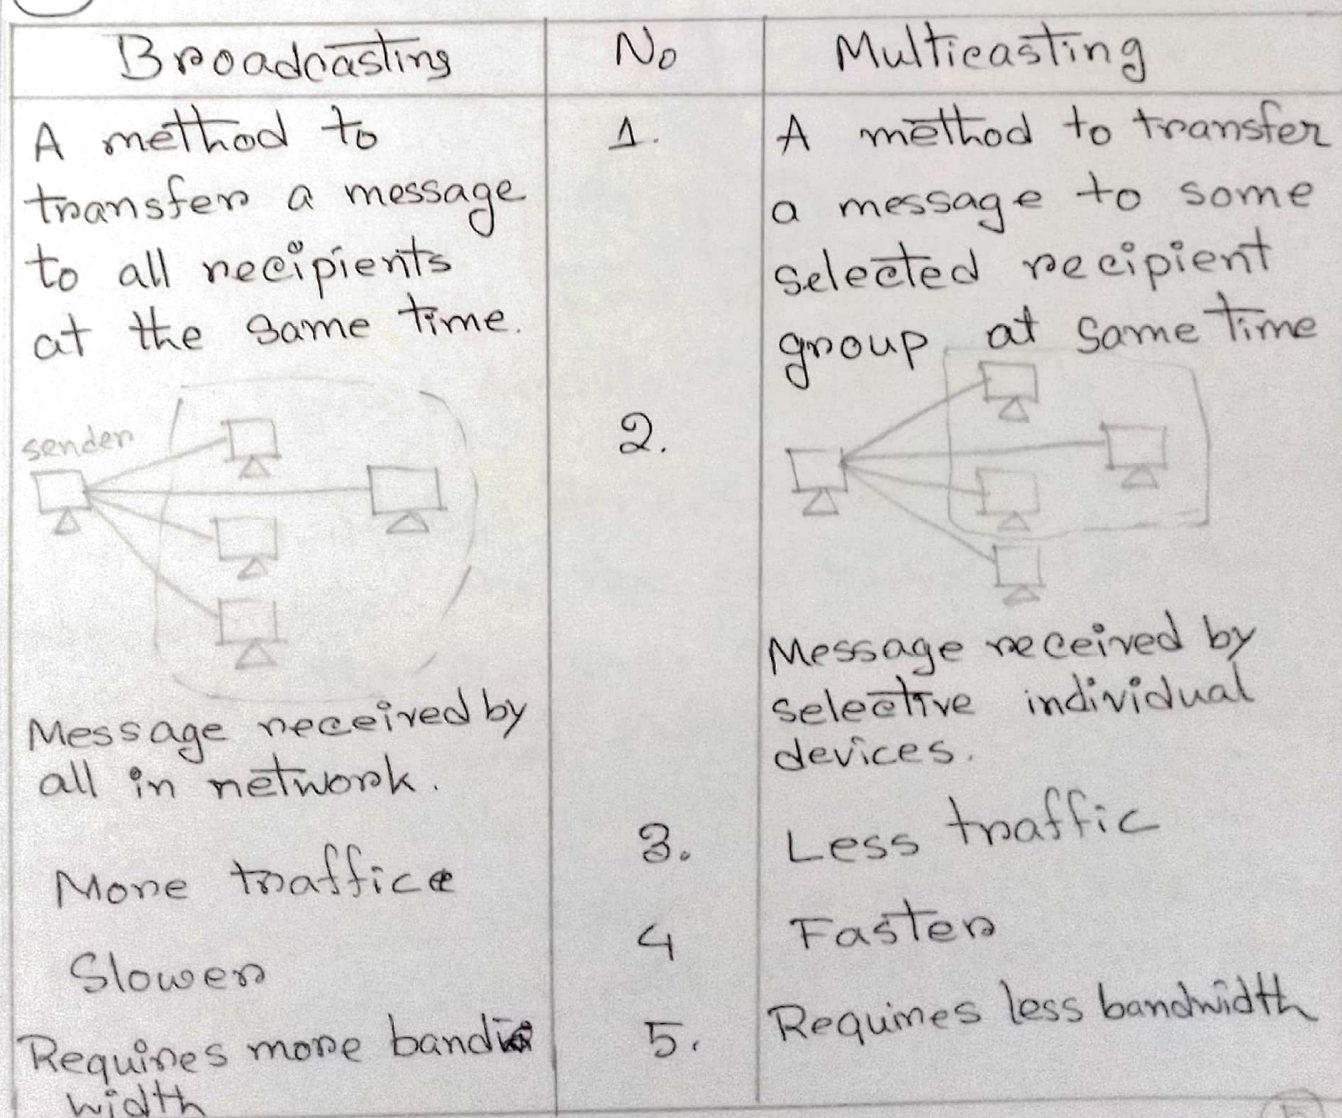 Broadcasting
No
Multicasting
A method to
transfer a message
to all recipients
at the same time.
1.
A method to transfer
a message to some
selected recipient
group at same time
sender
2.
Message received by
all in network.
Message received by
selective individual
devices.
More traffice
3.
Less traffic
Slower
4
Faster
Requires more band
width
5.
Requires less bandwidth